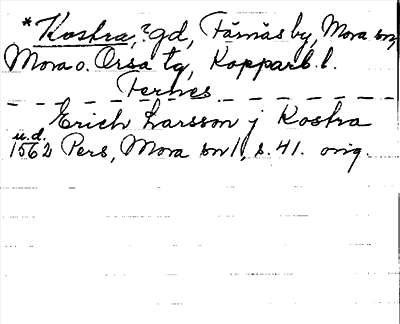 *Kostra, ?gd, Färnäs by, Mora sn,
Mora o. Orsa tg, Kopparb. l.
Fernes
Erich Larsson j Kostra
u.d.
1562 Pers, Mora sn 1, s. 41. orig.